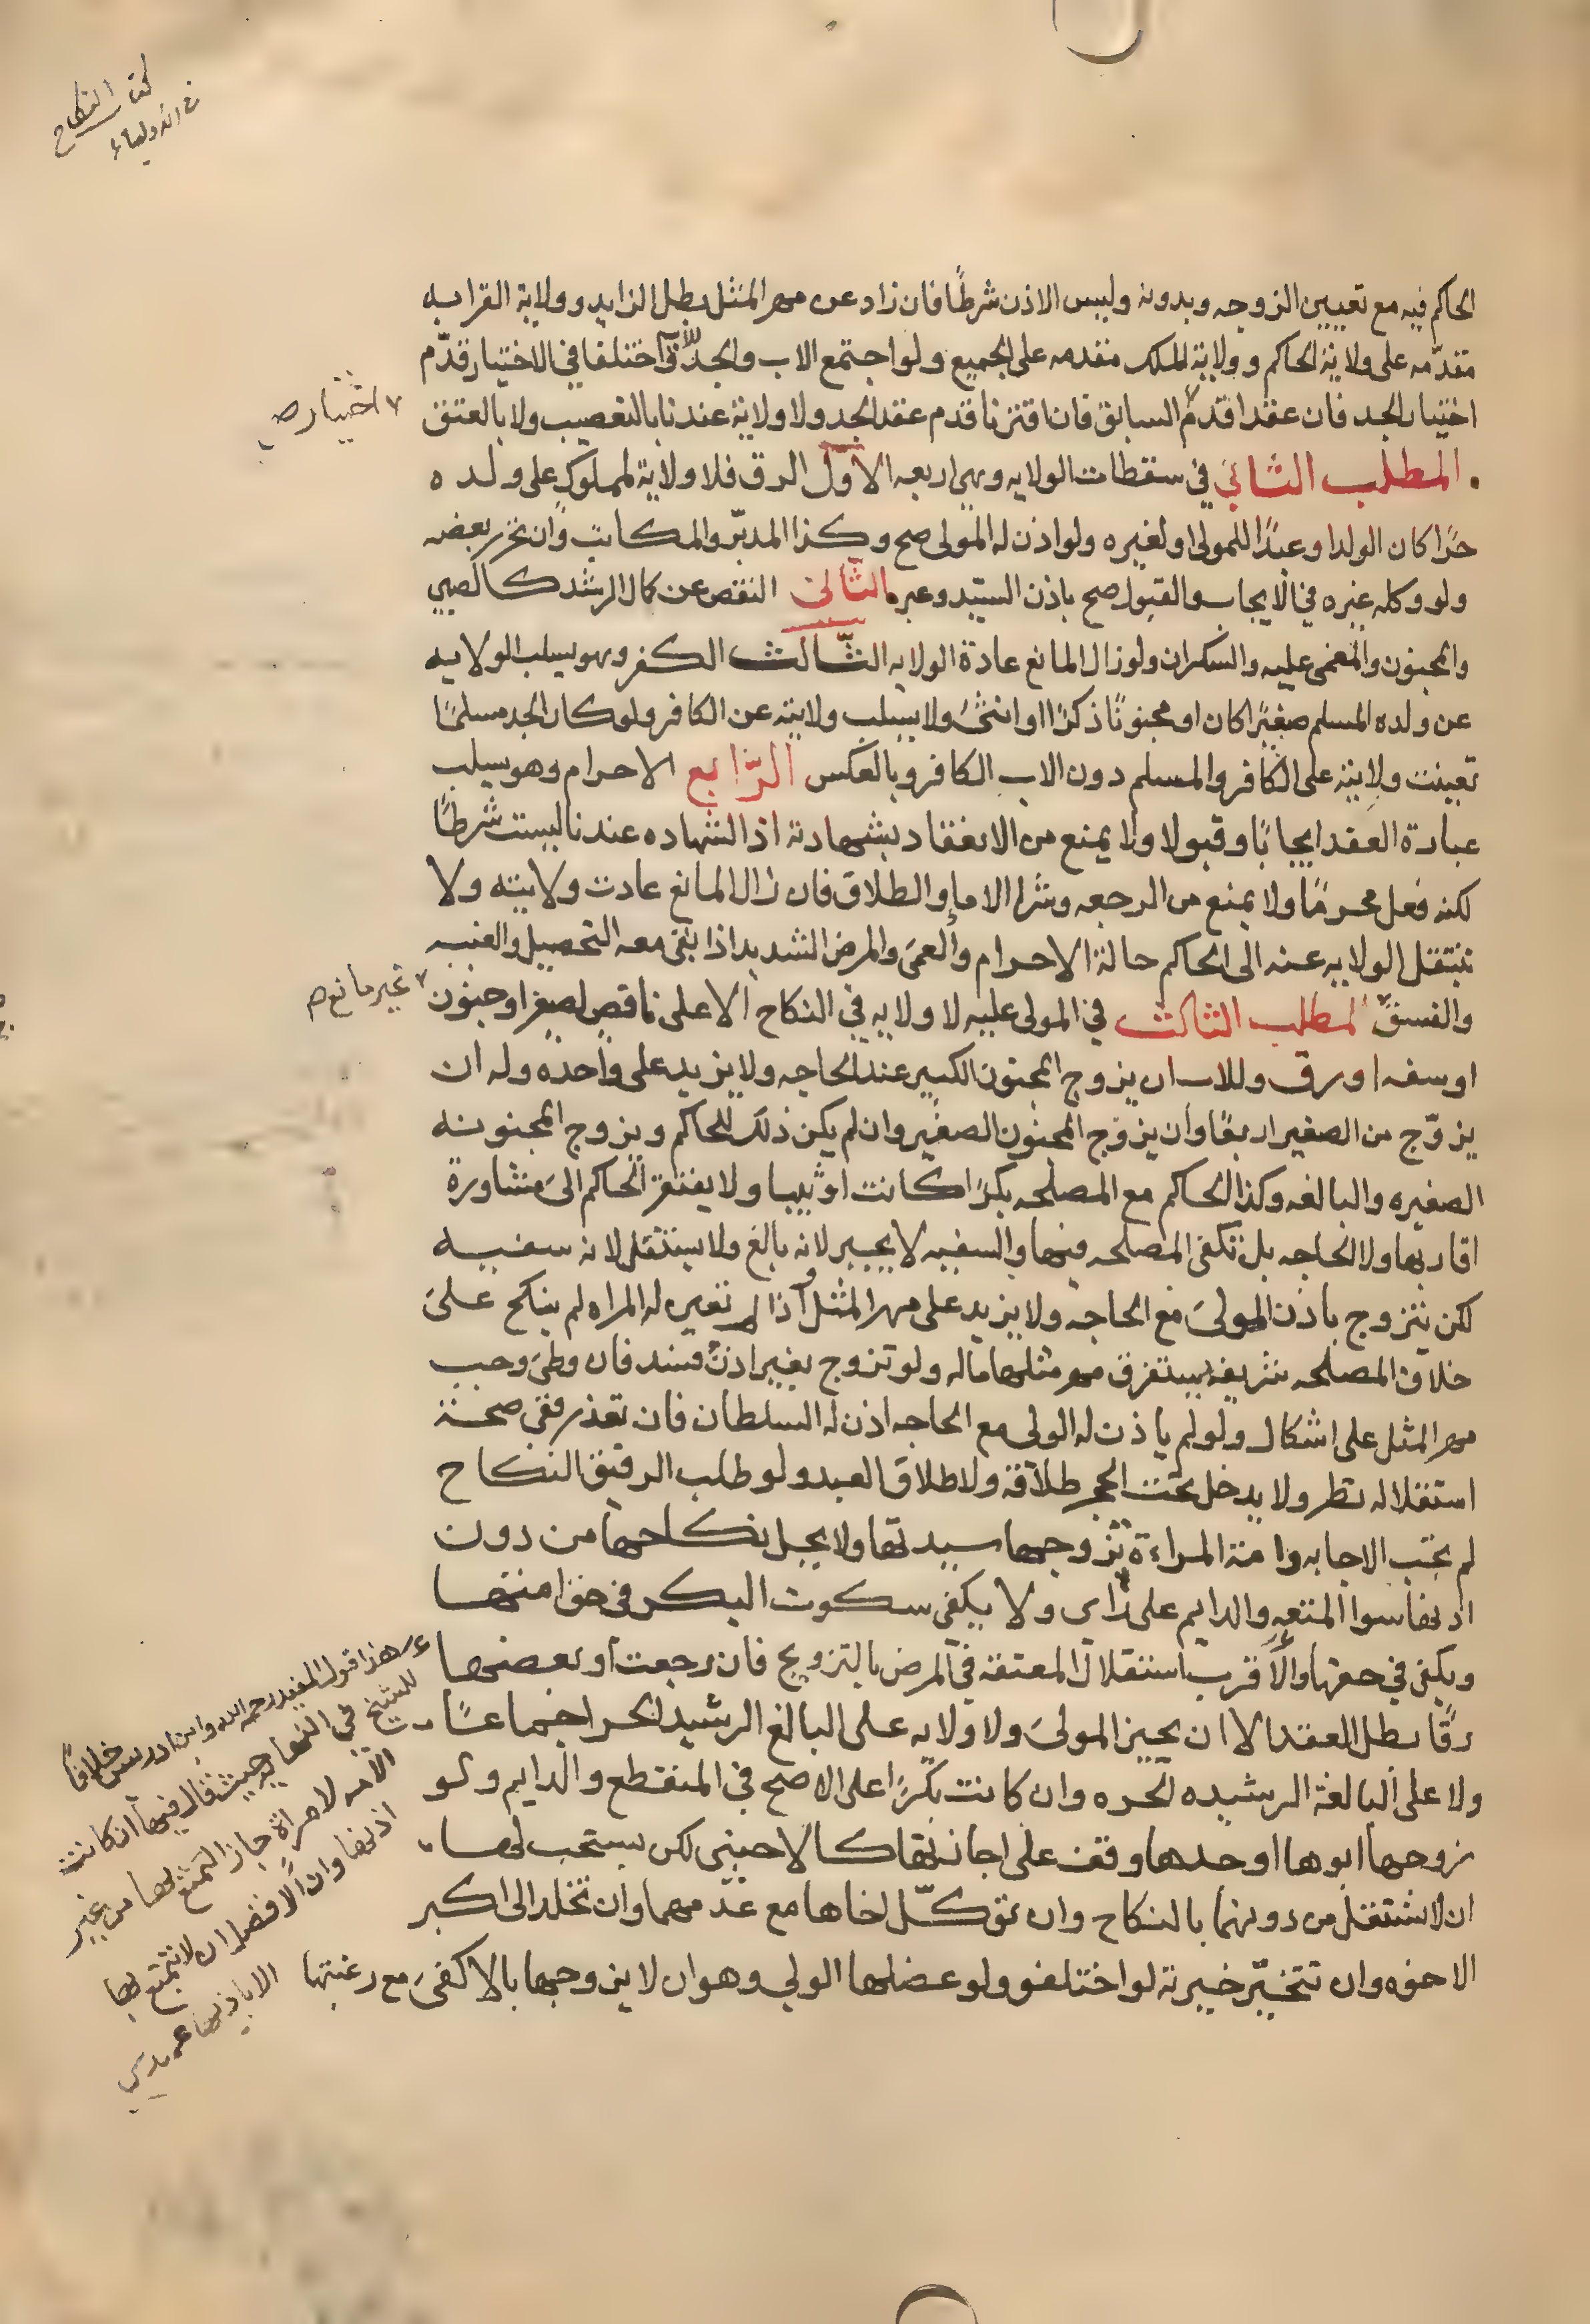 كتاب النكاح
في الاولياء
الحاكم فيه مع تعيين الزوجه وبدونه وليس الاذن شرطًا فان زاد عن مهر المثل بطل الزايد وولاية القرابه
مقدّمه على ولاية الحاكم وولاية الملك مقدمه على الجميع ولو اجتمع الاب والجد واختلفا في الاختيار قدّم
اختيار الجد فان عقدا قدم السابق فان اقترنا قدم عقد الجد ولا ولاية عندنا بالتعصيب ولا بالعتق
اختيار ص
المطلب الثاني في سقطات الولايه وهي اربعه الاول الرق فلا ولاية لمملوك على ولده
حرًا كان الولد او عبدًا للمولى او لغيره ولو اذن له المولى صح وكذا المدبّر والمكاتب وان تحرر بعضه
ولو وكله غيره في الايجاب والقبول صح باذن السيّد وغيره الثاني النقص عن كمال الرشد كالصبي
والمجنون والمغمى عليه والسكران ولو زال المانع عادة الولايه الثّالث الكفر وهو يسلب الولايه
عن ولده المسلم صغيرًا كان او مجنونًا ذكرًا او انثى ولا يسلب ولايته عن الكافر ولو كان الجد مسلمًا
تعينت ولايته على الكافر والمسلم دون الاب الكافر وبالعكس الرّابع الاحرام وهو يسلب
عبارة العقد ايجابًا وقبولا ولا يمنع من الانعقاد بشهادته اذ الشهاده عندنا ليست شرطًا
لكنه فعل محرمًا ولا يمنع من الرجعه وشرا الاماء والطلاق فان زال المانع عادت ولايته ولا
تنتقل الولايه عنه الى الحاكم حالة الاحرام والعمى والمرض الشديد اذا بقى معه التحصيل والغيبه
والفسق المطلب الثالث في المولى عليه لا ولايه في النكاح الا على ناقص لصغر او جنون
غير مانع ص
او سفه او رق وللاب ان يزوج المجنون الكبير عند الحاجه ولا يزيد على واحده وله ان
يزوّج من الصغير اربعًا وان يزوّج المجنون الصغير وان لم يكن ذلك للحاكم ويزوج المجنونه
الصغيره والبالغه وكذا الحاكم مع المصلحه بكرًا كانت او ثيبا ولا يفتقر الحاكم الى مشاورة
اقاربها ولا الحاجه بل تكفى المصلحه فيها والسفيه لا يجبر لانه بالغ ولا يستقل لانه سفيه
لكن يتزوج باذن المولى مع الحاجه ولا يزيد على مهر المثل واذا لم تعين له المراه لم ينكح على
خلاف المصلحه شريفه يستغرق مهر مثلها ماله ولو تزوج بغير اذن فسد فان وطى وجب
مهر المثل على اشكال ولو لم ياذن له الولى مع الحاجه اذن له السلطان فان تعذر ففى صحة
استقلاله نظر ولا يدخل تحت الحجر طلاقه ولا طلاق العبد ولو طلب الرقيق النكاح
لم تجب الاجابه وامة المراءة تزوجها سيدتها ولا يحل نكاحها من دون
اذنها سوا المتعه والدايم على راى ولا يكفي سكوت البكر في حق امتها
ويكفي في حقها والاقرب استقلال المعتقة في المرض بالتزويج فان رجعت او بعضها
رقًا بطل العقد الا ان يجيز المولى ولا ولايه على البالغ الرشيد الحر اجماعًا
ولا على البالغة الرشيده الحره وان كانت بكرًا على الاصح في المنقطع والدايم ولو
زوجها ابوها او جدها وقف على اجازتها كالاجنبي لكن يستحب لها
ان لا تستقل من دونهما بالنكاح وان توكّل اخاها مع عدمهما وان تخلد الى اكبر
الاخوه وان تتخيّر خيرته لو اختلفو ولو عضلها الولي وهو ان لا يزوجها بالاكفى مع رغبتها
هذا قول المفيد رحمه الله وابن ادريس خلافًا
للشيخ في النهايه حيث قال فيها ان كانت
الامه لامراة جاز التمتع بها من غير
اذنها وان الافضل ان لا يتمتع بها
الا باذنها